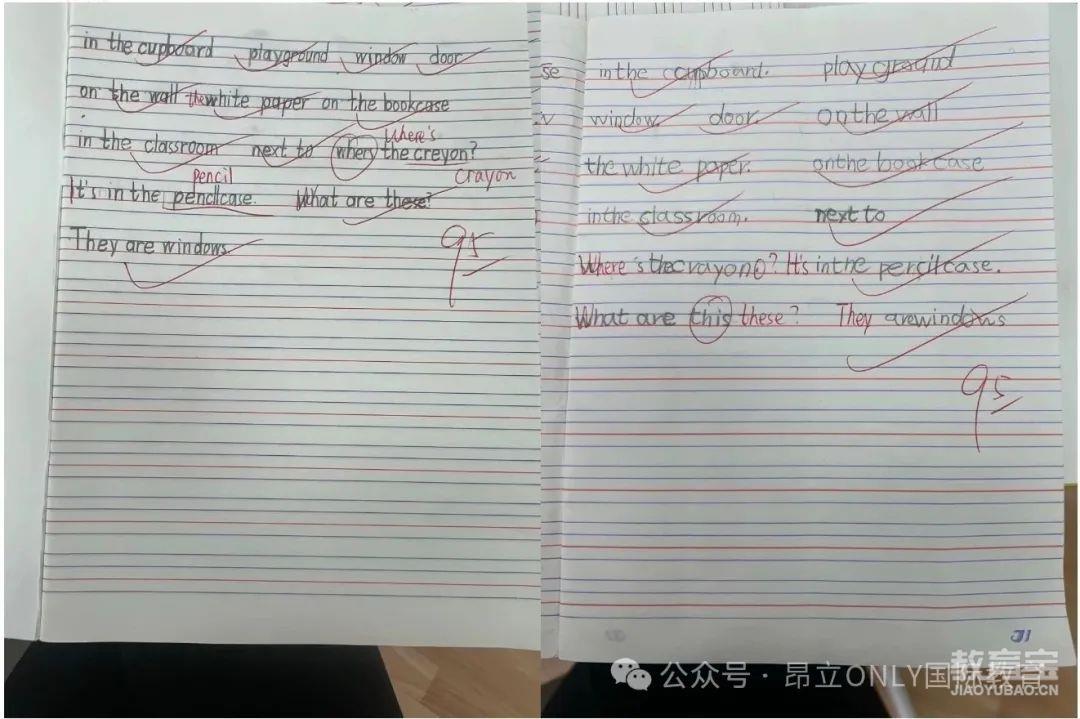 in the cupboard playground window door
on the wall the white paper on the bookcase
Where's
in the classroom next to where the creyon?
pencil crayon
It's in the pencilcase. What are these?
They are windows.
95
in the cupboard. playground
window. door. on the wall
the white paper. on the bookcase
in the classroom. next to
Where's the crayon? It's in the pencil case.
What are this these? They are windows
95
31
公众号·昂立ONLY国际教育
教育宝
JIAOYUBAO.CN